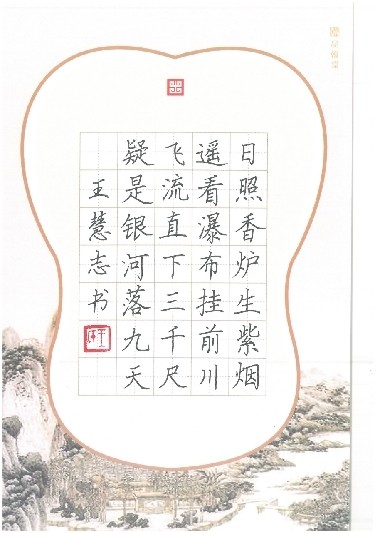 日照香炉生紫烟
遥看瀑布挂前川
飞流直下三千尺
疑是银河落九天
王慧志书